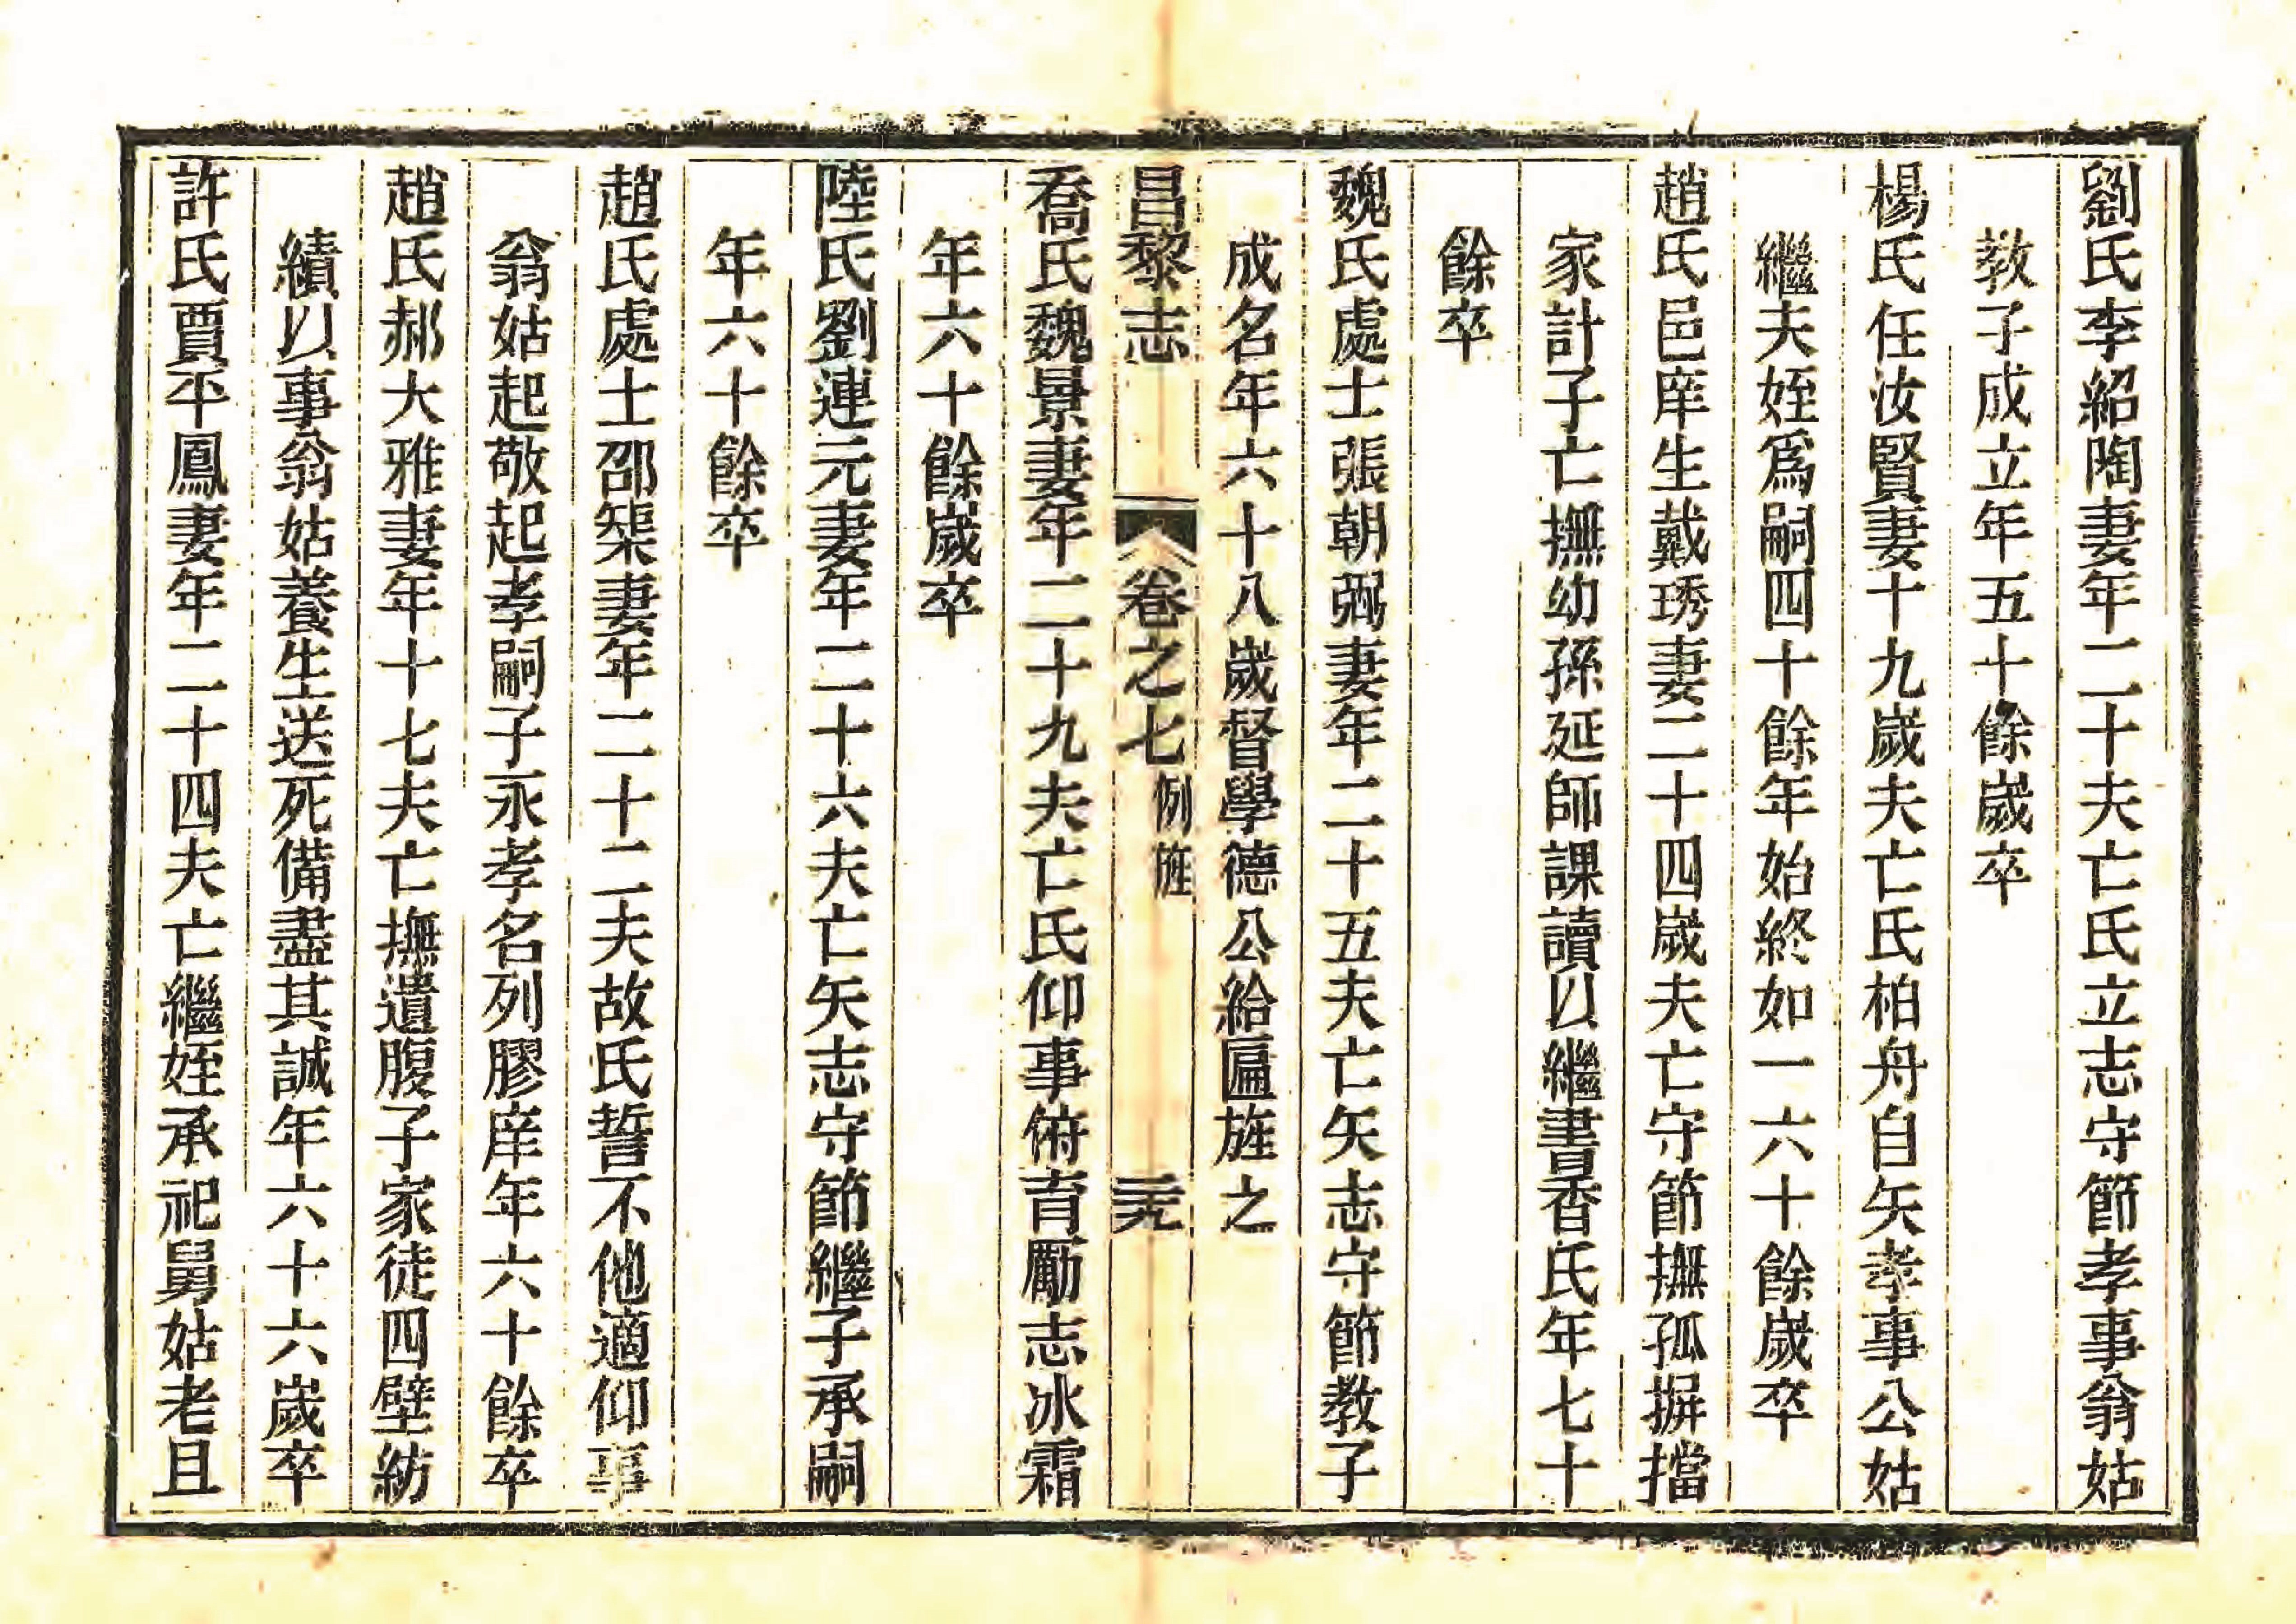 劉氏李紹陶妻年二十夫亡氏立志守節孝事翁姑
教子成立年五十餘歲卒
楊氏任汝賢妻十九歲夫亡氏柏舟自矢孝事公姑
繼夫姪爲嗣四十餘年始終如一六十餘歲卒
趙氏邑庠生戴琇妻二十四歲夫亡守節撫孤摒擋
家計子亡撫幼孫延師課讀以繼書香氏年七十
餘卒
魏氏處士張朝弼妻年二十五夫亡矢志守節教子
成名年六十八歲督學德公給匾旌之
昌黎志 卷之七 例旌 三十九
喬氏魏景妻年二十九夫亡氏仰事俯育勵志冰霜
年六十餘歲卒
陸氏劉連元妻年二十六夫亡矢志守節繼子承嗣
年六十餘卒
趙氏處士邵榘妻年二十二夫故氏誓不他適仰事
翁姑起敬起孝嗣子永孝名列膠庠年六十餘卒
趙氏郝大雅妻年十七夫亡撫遺腹子家徒四壁紡
績以事翁姑養生送死備盡其誠年六十六歲卒
許氏賈平鳳妻年二十四夫亡繼姪承祀舅姑老且